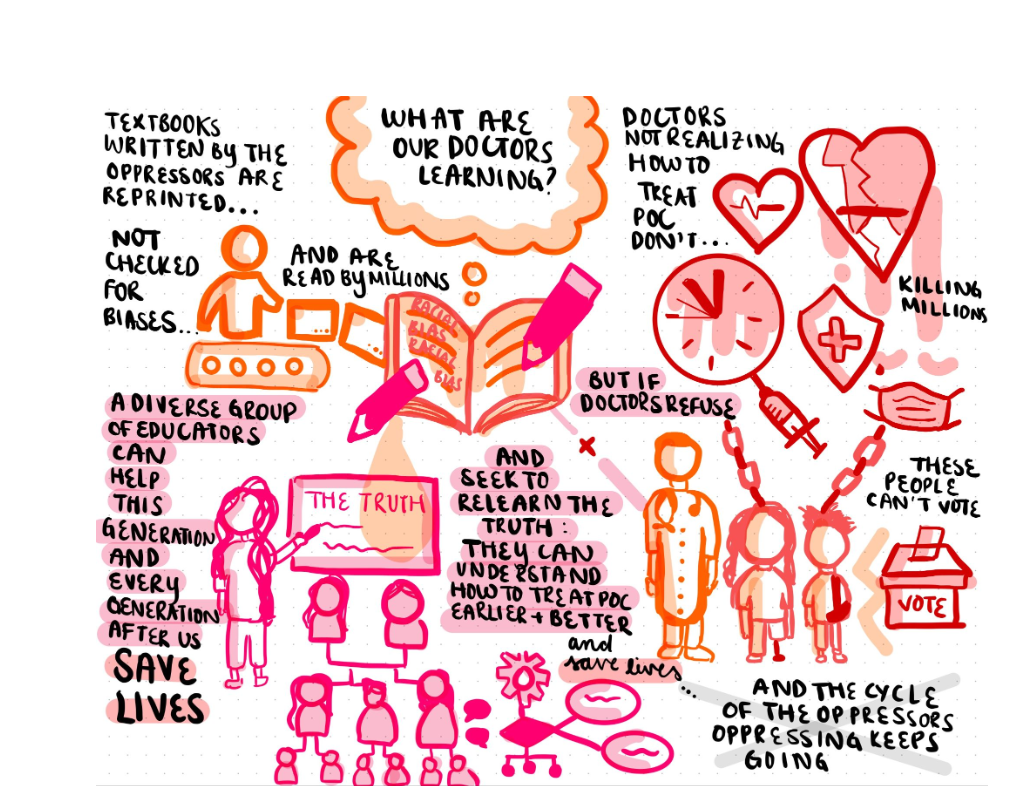 WHAT ARE
OUR DOCTORS
LEARNING?
TEXTBOOKS
WRITTEN BY THE
OPPRESSORS ARE
REPRINTED...
NOT
CHECKED
FOR
BIASES...
AND ARE
READ BY MILLIONS
RACIAL
BIAS
RACIAL
BIAS
DOCTORS
NOT REALIZING
HOW TO
TREAT
POC
DON'T...
KILLING
MILLIONS
THESE
PEOPLE
CAN'T VOTE
VOTE
AND THE CYCLE
OF THE OPPRESSORS
OPPRESSING KEEPS
GOING
BUT IF
DOCTORS REFUSE
AND
SEEK TO
RELEARN THE
TRUTH:
THEY CAN
UNDERSTAND
HOW TO TREAT POC
EARLIER + BETTER
and
save lives
...
A DIVERSE GROUP
OF EDUCATORS
CAN
HELP
THIS
GENERATION
AND
EVERY
GENERATION
AFTER US
SAVE
LIVES
THE TRUTH